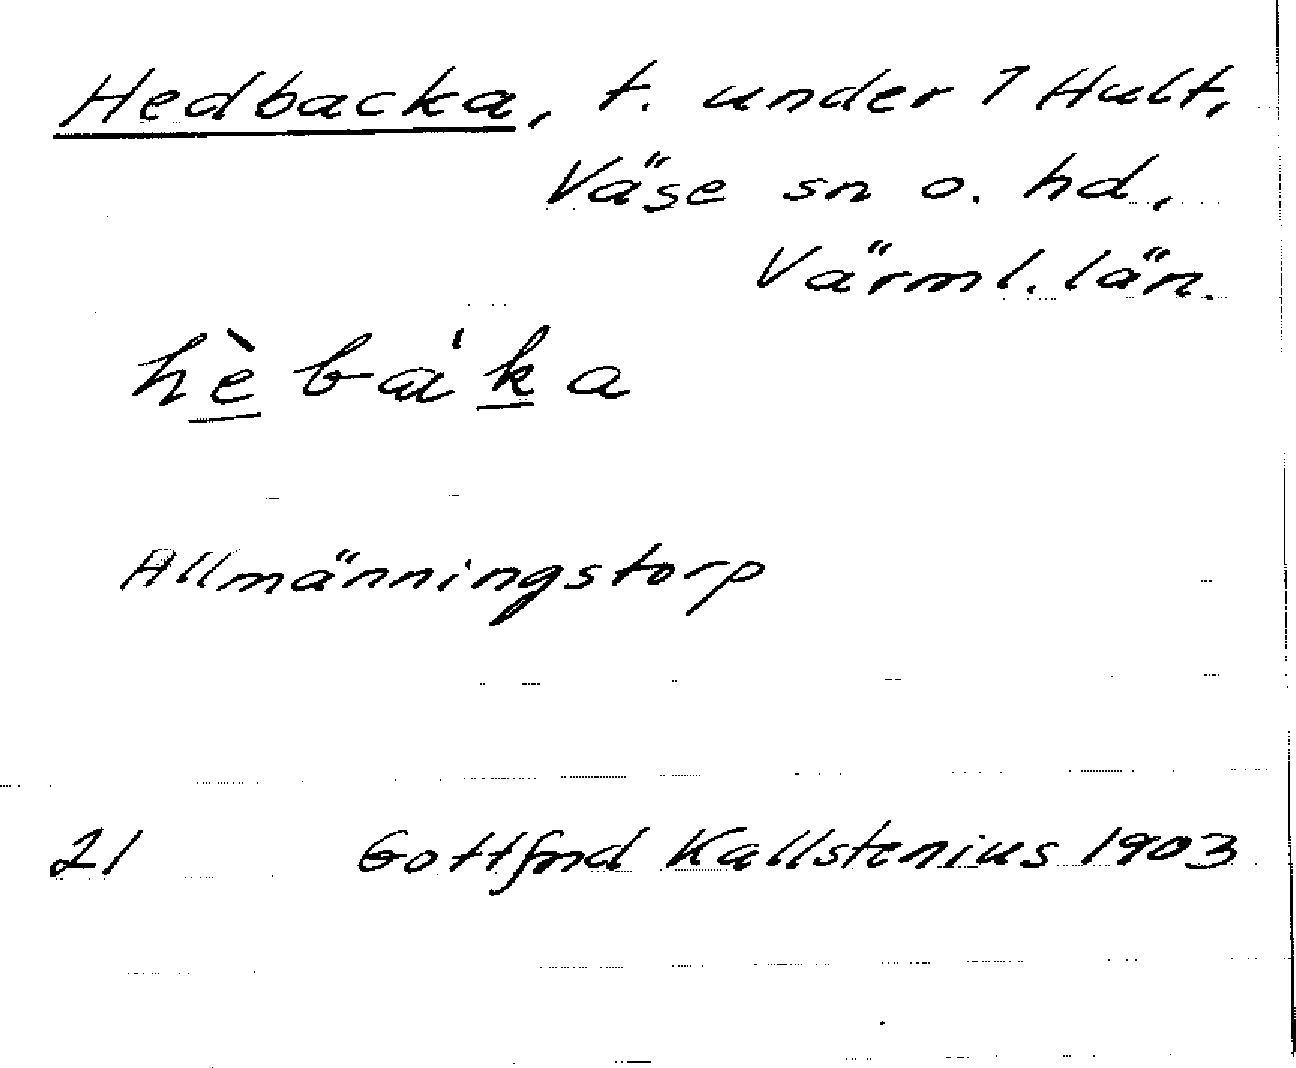 Hedbacka, t. under 1 Hult,
Väse sn o. hd,
Värml. län.
hèba'ka
Allmänningstorp
21 Gottfrid Kallstenius 1903